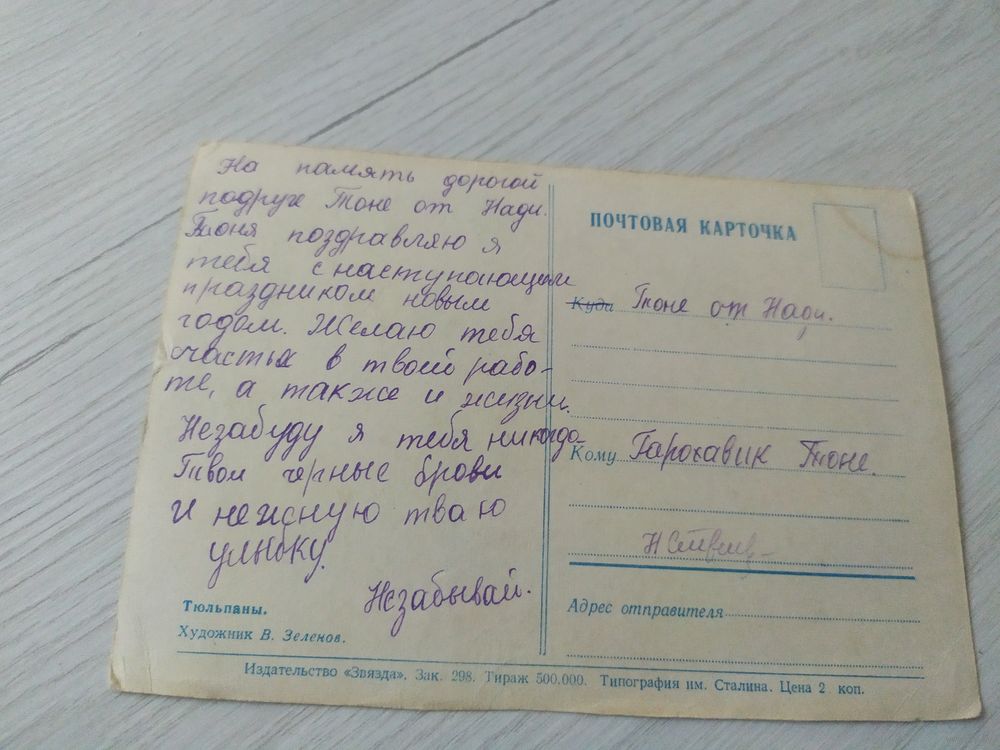 На память дорогой
подруге Тоне от Нади.
Тоня поздравляю я
тебя с наступающим
праздником новым
годом. Желаю тебя
счастья в твоей рабо-
те, а также и жизни.
Незабуду я тебя никогда
Твои черные брови
И нежную тваю
улыбку.
Незабывай.
Тюльпаны.
Художник В. Зеленов.
ПОЧТОВАЯ КАРТОЧКА
Куда Тоне от Нади.
Кому Гарохавик Тоне.
Адрес отправителя
Издательство «Звязда». Зак. 298. Тираж 500.000. Типография им. Сталина. Цена 2 коп.